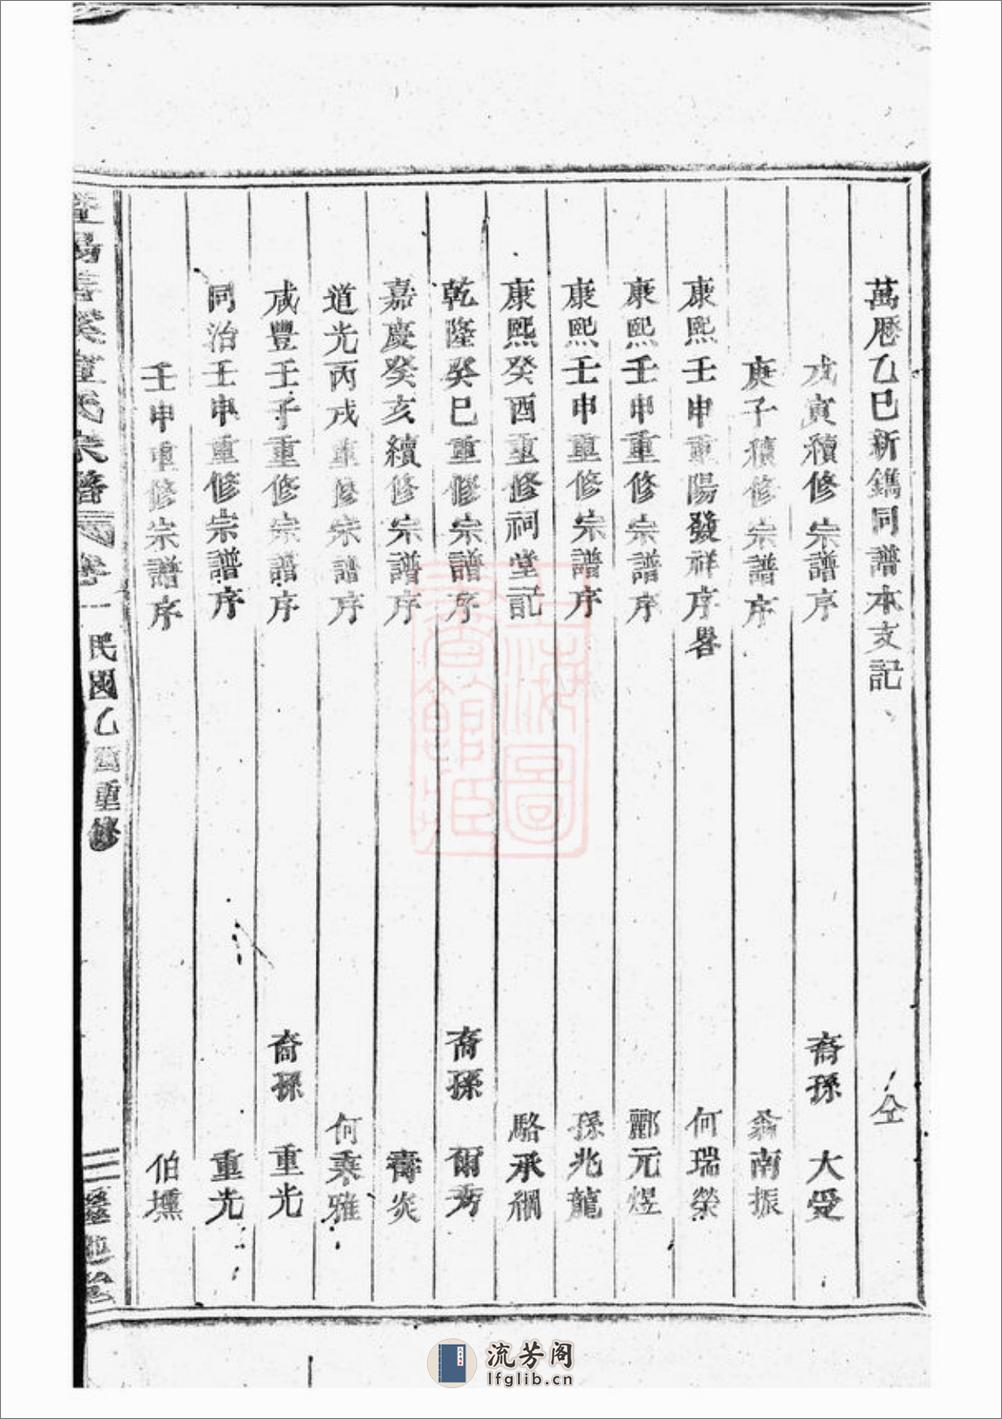 萬厯乙巳新鐫同譜本支記 仝
戊寅續修宗譜序 裔孫 大受
庚子續修宗譜序 翁南振
康熙壬申重陽發祥序畧 何瑞榮
康熙壬申重修宗譜序 酈元煜
康熙壬申重修宗譜序 孫兆龍
康熙癸酉重修祠堂記 駱承綱
乾隆癸巳重修宗譜序 裔孫 爾秀
嘉慶癸亥續修宗譜序 壽炎
道光丙戌重修宗譜序 何秉雅
咸豐壬子重修宗譜序 裔孫 重光
同治壬申重修宗譜序 重光
壬申重修宗譜序 伯壎
宗譜 卷一 民國乙酉重修 二
上海圖書館藏
流芳阁
lfglib.cn